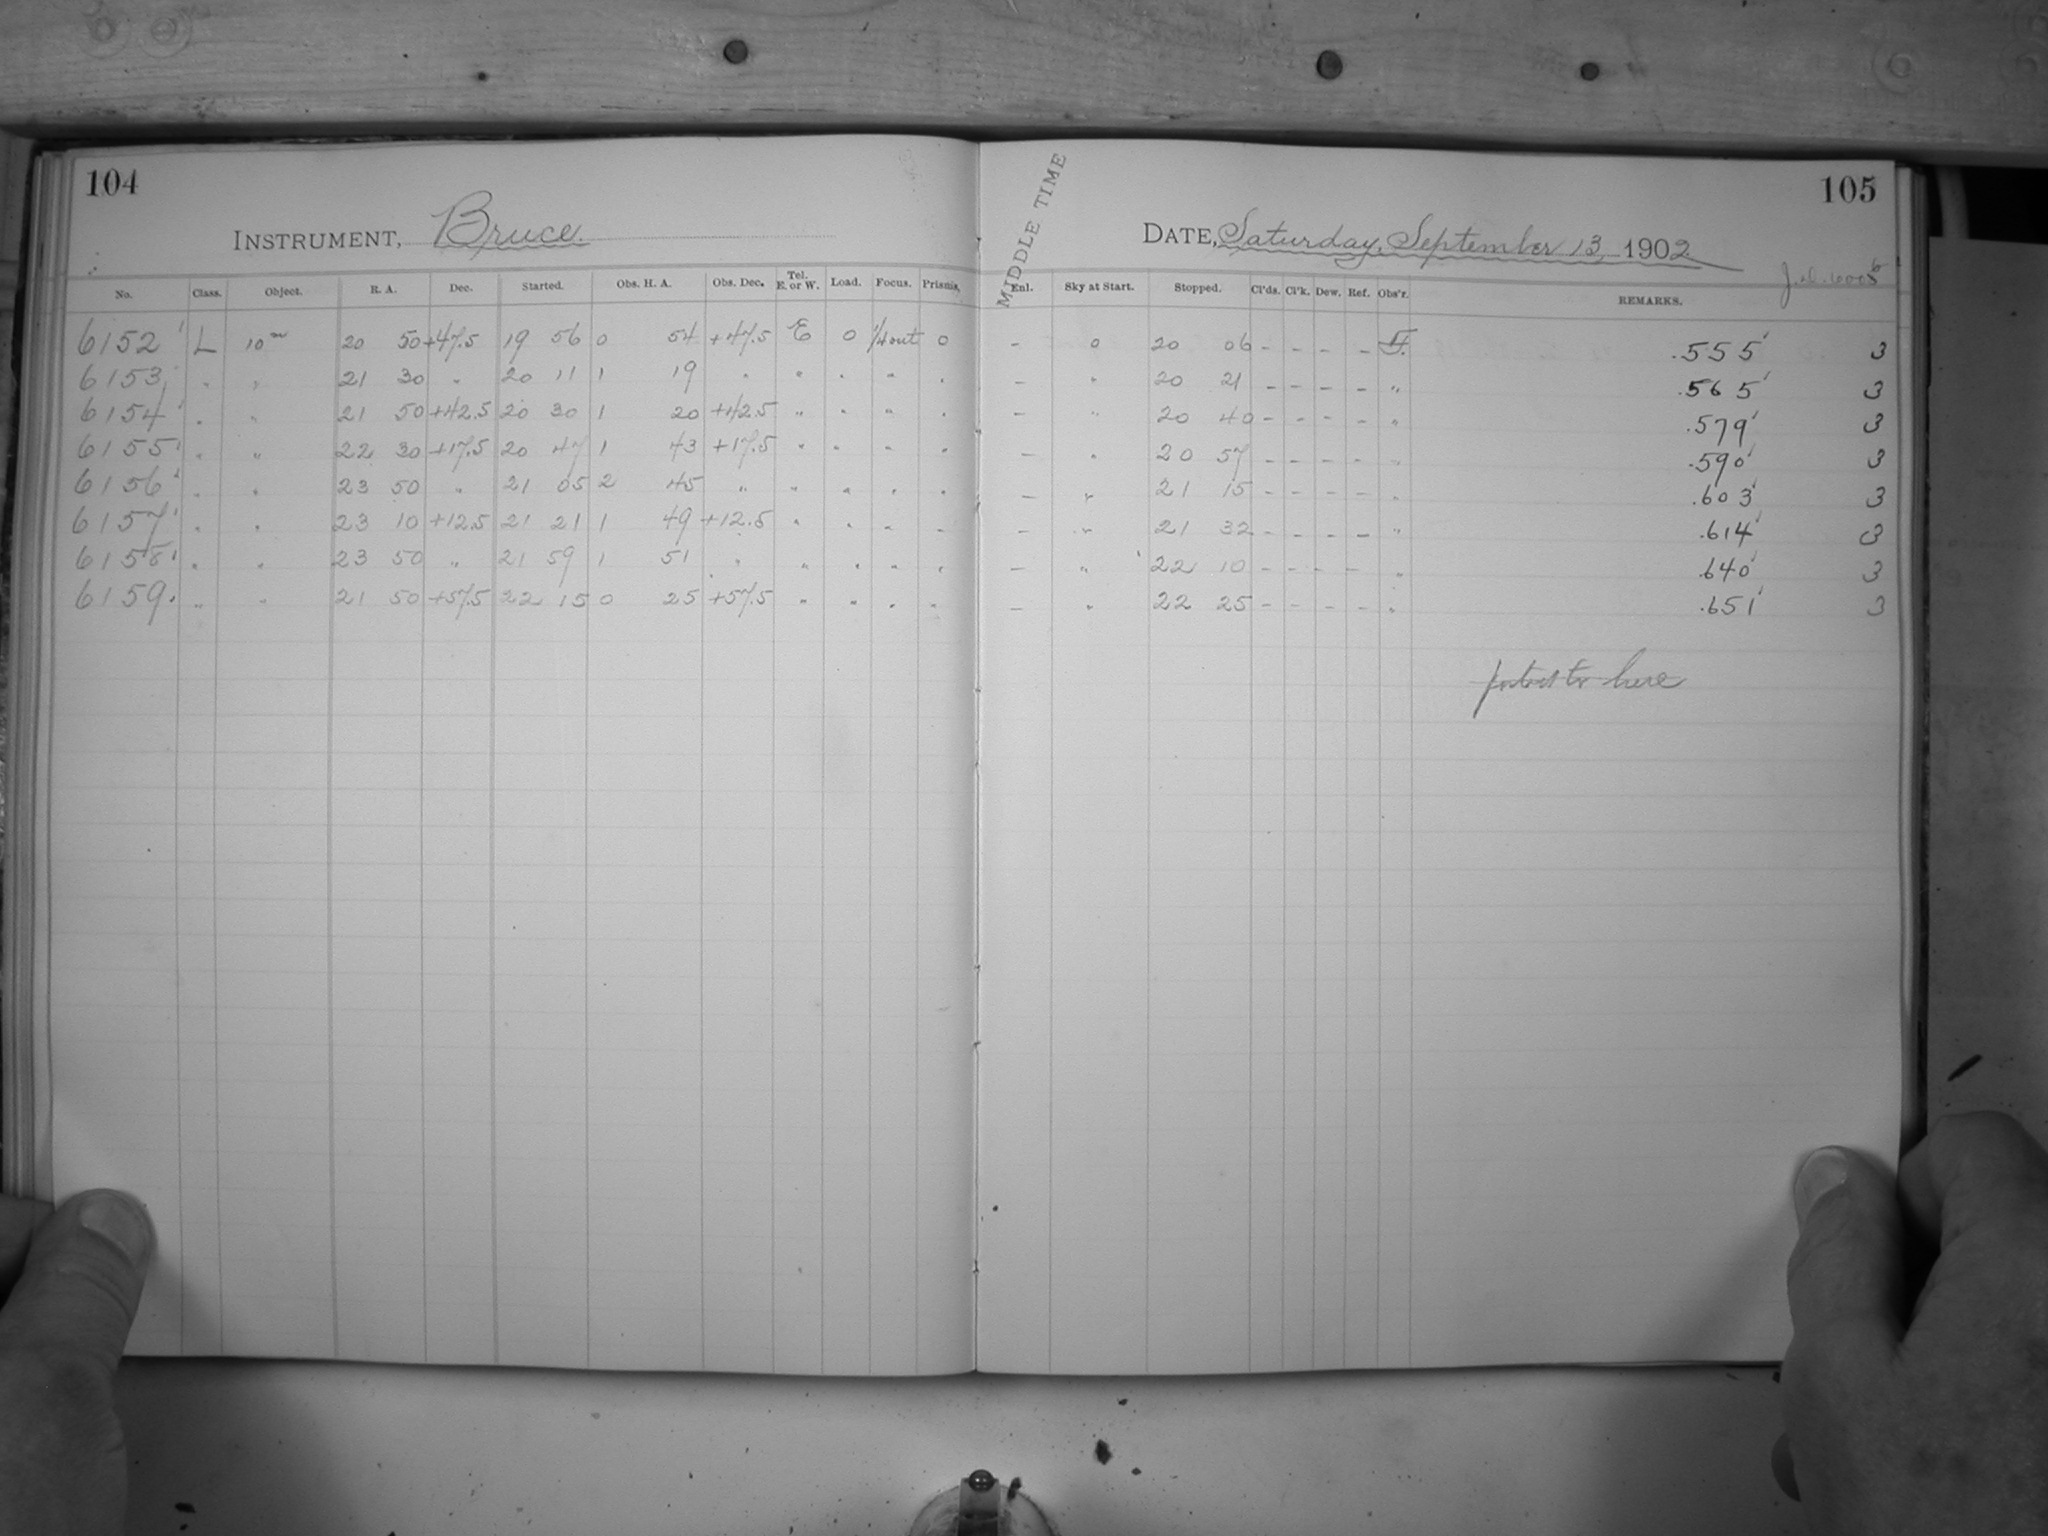 104
INSTRUMENT, Bruce.
No. Class. Object. R. A. Dec. Started. Obs. H. A. Obs. Dec. Tel. E. or W. Load. Focus. Prisms.
6152 L 10m 20 50 +47.5 19 56 0 54 +47.5 E 0 1/4 out 0
6153 " " 21 30 " 20 11 1 19 " " " " "
6154 " " 21 50 +42.5 20 30 1 20 +42.5 " " " "
6155 " " 22 30 +17.5 20 47 1 43 +17.5 " " " "
6156 " " 23 50 " 21 05 2 45 " " " " "
6157 " " 23 10 +12.5 21 21 1 49 +12.5 " " " "
6158 " " 23 50 " 21 59 1 51 " " " " "
6159 " " 21 50 +57.5 22 15 0 25 +57.5 " " " "
105
MIDDLE TIME
DATE, Saturday, September 13, 1902
Enl. Sky at Start. Stopped. Cl'ds. Cl'k. Dew. Ref. Obs'r. REMARKS.
– 0 20 06 – – – – F. .555 3
– " 20 21 – – – – " .565 3
– " 20 40 – – – – " .579 3
– " 20 57 – – – – " .590 3
– " 21 15 – – – – " .603 3
– " 21 32 – – – – " .614 3
– " 22 10 – – – – " .640 3
– " 22 25 – – – – " .651 3
here